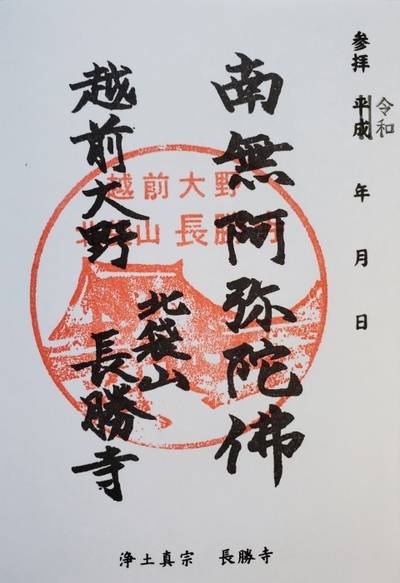 参拝 平成 年 月 日
令和
南無阿弥陀佛
越前大野
北袋山
長勝寺
越前大野
北袋山 長勝寺
浄土真宗 長勝寺